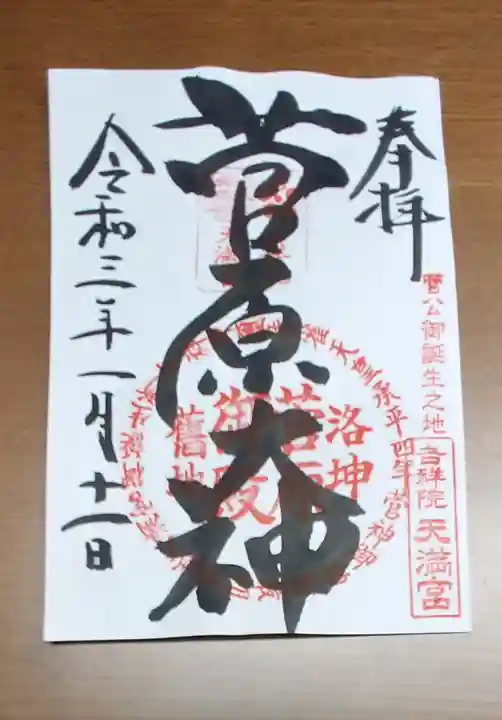 奉拝
菅公御誕生之地
吉祥院天満宮
菅原大神
洛坤
菅原
御殿
舊地
令和三年一月十一日